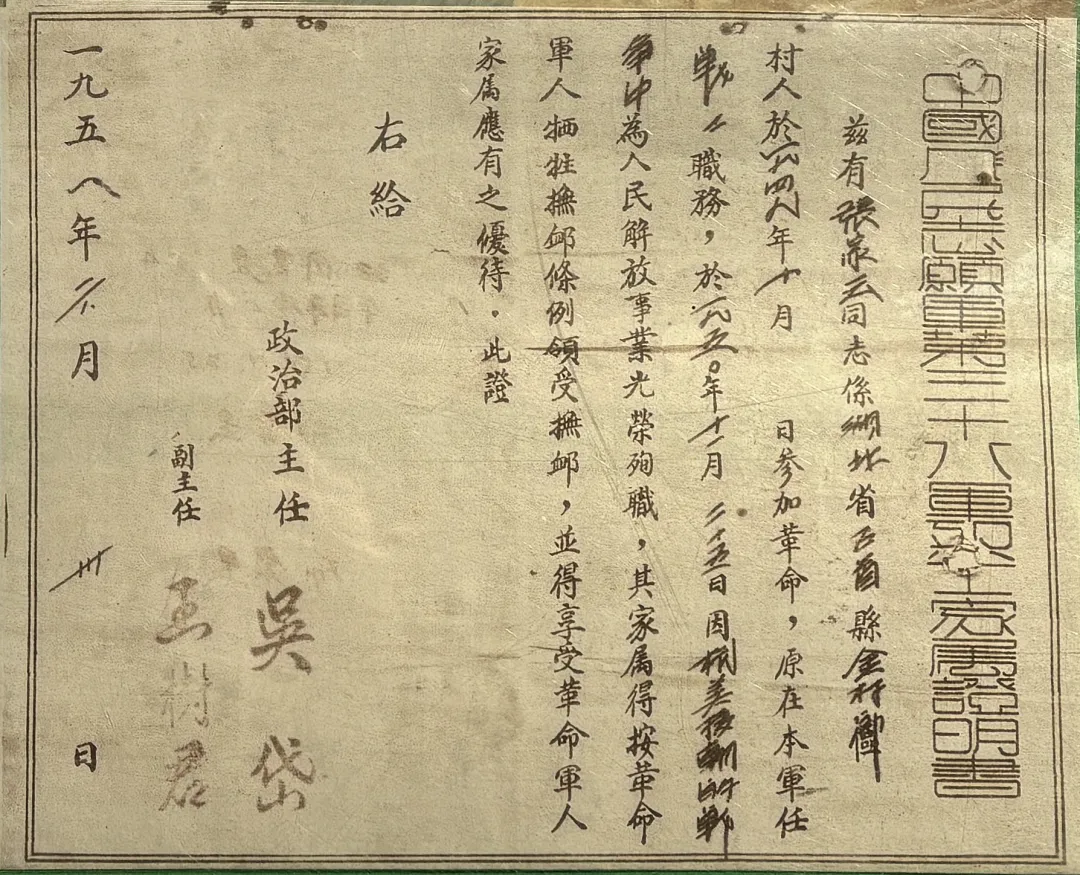 中國人民志願軍第三十八軍烈士家屬證明書
兹有張家云同志係湖北省 縣金村
村人於一九四八年十月 日參加革命，原在本軍任
戰士職務，於一九五〇年十一月二十五日因抗美援朝的戰
爭中為人民解放事業光榮殉職，其家属得按革命
軍人牺牲撫卹條例領受撫卹，並得享受革命軍人
家属應有之優待。此證
右給
政治部主任 吳岱
副主任 王樹君
一九五八年 月卅日